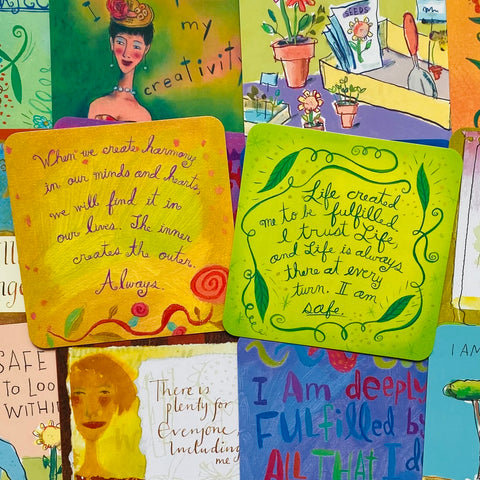 I
my
creativity
SEEDS
When we create harmony
in our minds and hearts,
we will find it in
our lives. The inner
creates the outer.
Always
Life created
me to be fulfilled.
I trust Life,
and Life is always
there at every
turn. I am
safe.
SAFE
to Loo
WITHI
There is
plenty for
Everyone
Including
me
I Am deeply
Fulfilled by
ALL THAT I d
I AM